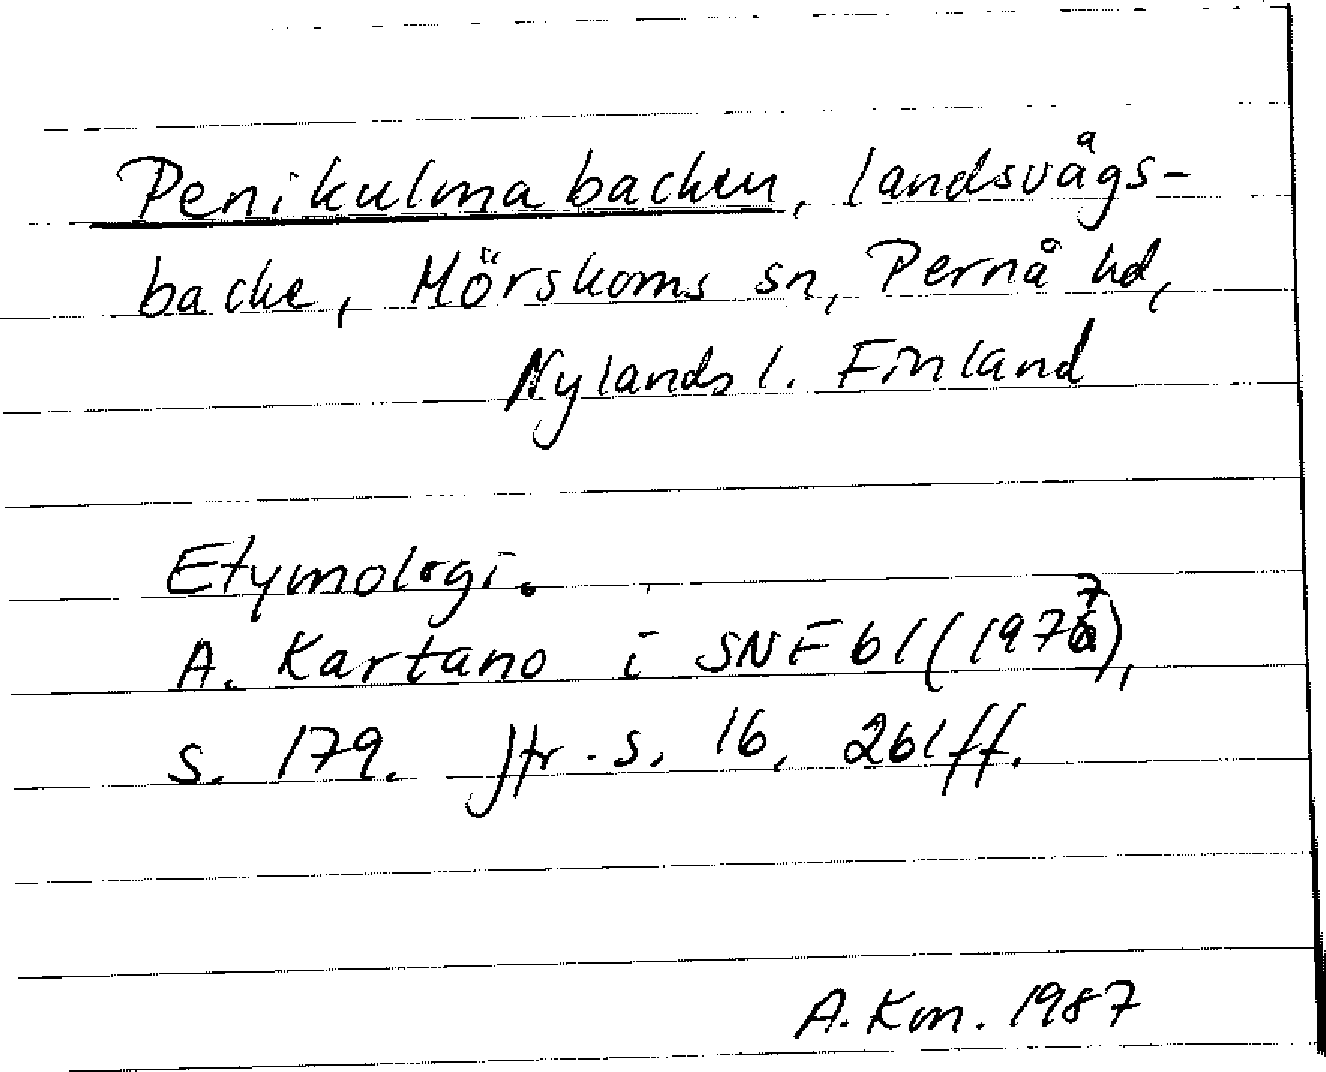 Penikulmabacken, landsvägs-
backe, Mörskoms sn, Pernå hd,
Nylands l. Finland
Etymologi.
A. Kartano i SNF 61 (1977),
s. 179. Jfr. s. 16, 261ff.
A. Km. 1987